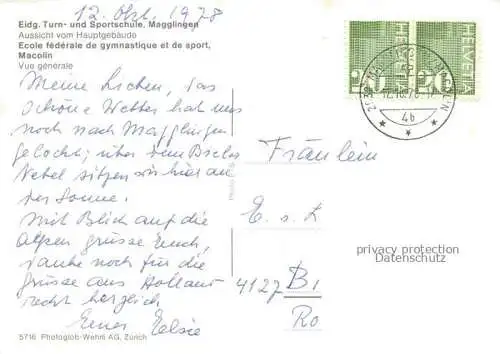 12. Okt. 1978
Eidg. Turn- und Sportschule, Magglingen
Aussicht vom Hauptgebäude
Ecole fédérale de gymnastique et de sport,
Macolin
Vue générale
Meine Lieben, das
schöne Wetter hat uns
noch nach Magglingen
gelockt; über dem Bieler
Nebel sitzen wir hier an
der Sonne.
Mit Blick auf die
Alpen grüsse Euch,
danke noch für die
Grüsse aus Holland
recht herzlich
5716 Photoglob-Wehrli AG, Zürich
HELVETIA
HELVETIA
20
20
46
Fräulein
E. s. L
privacy protection
Datenschutz
4127 Bi
Ro